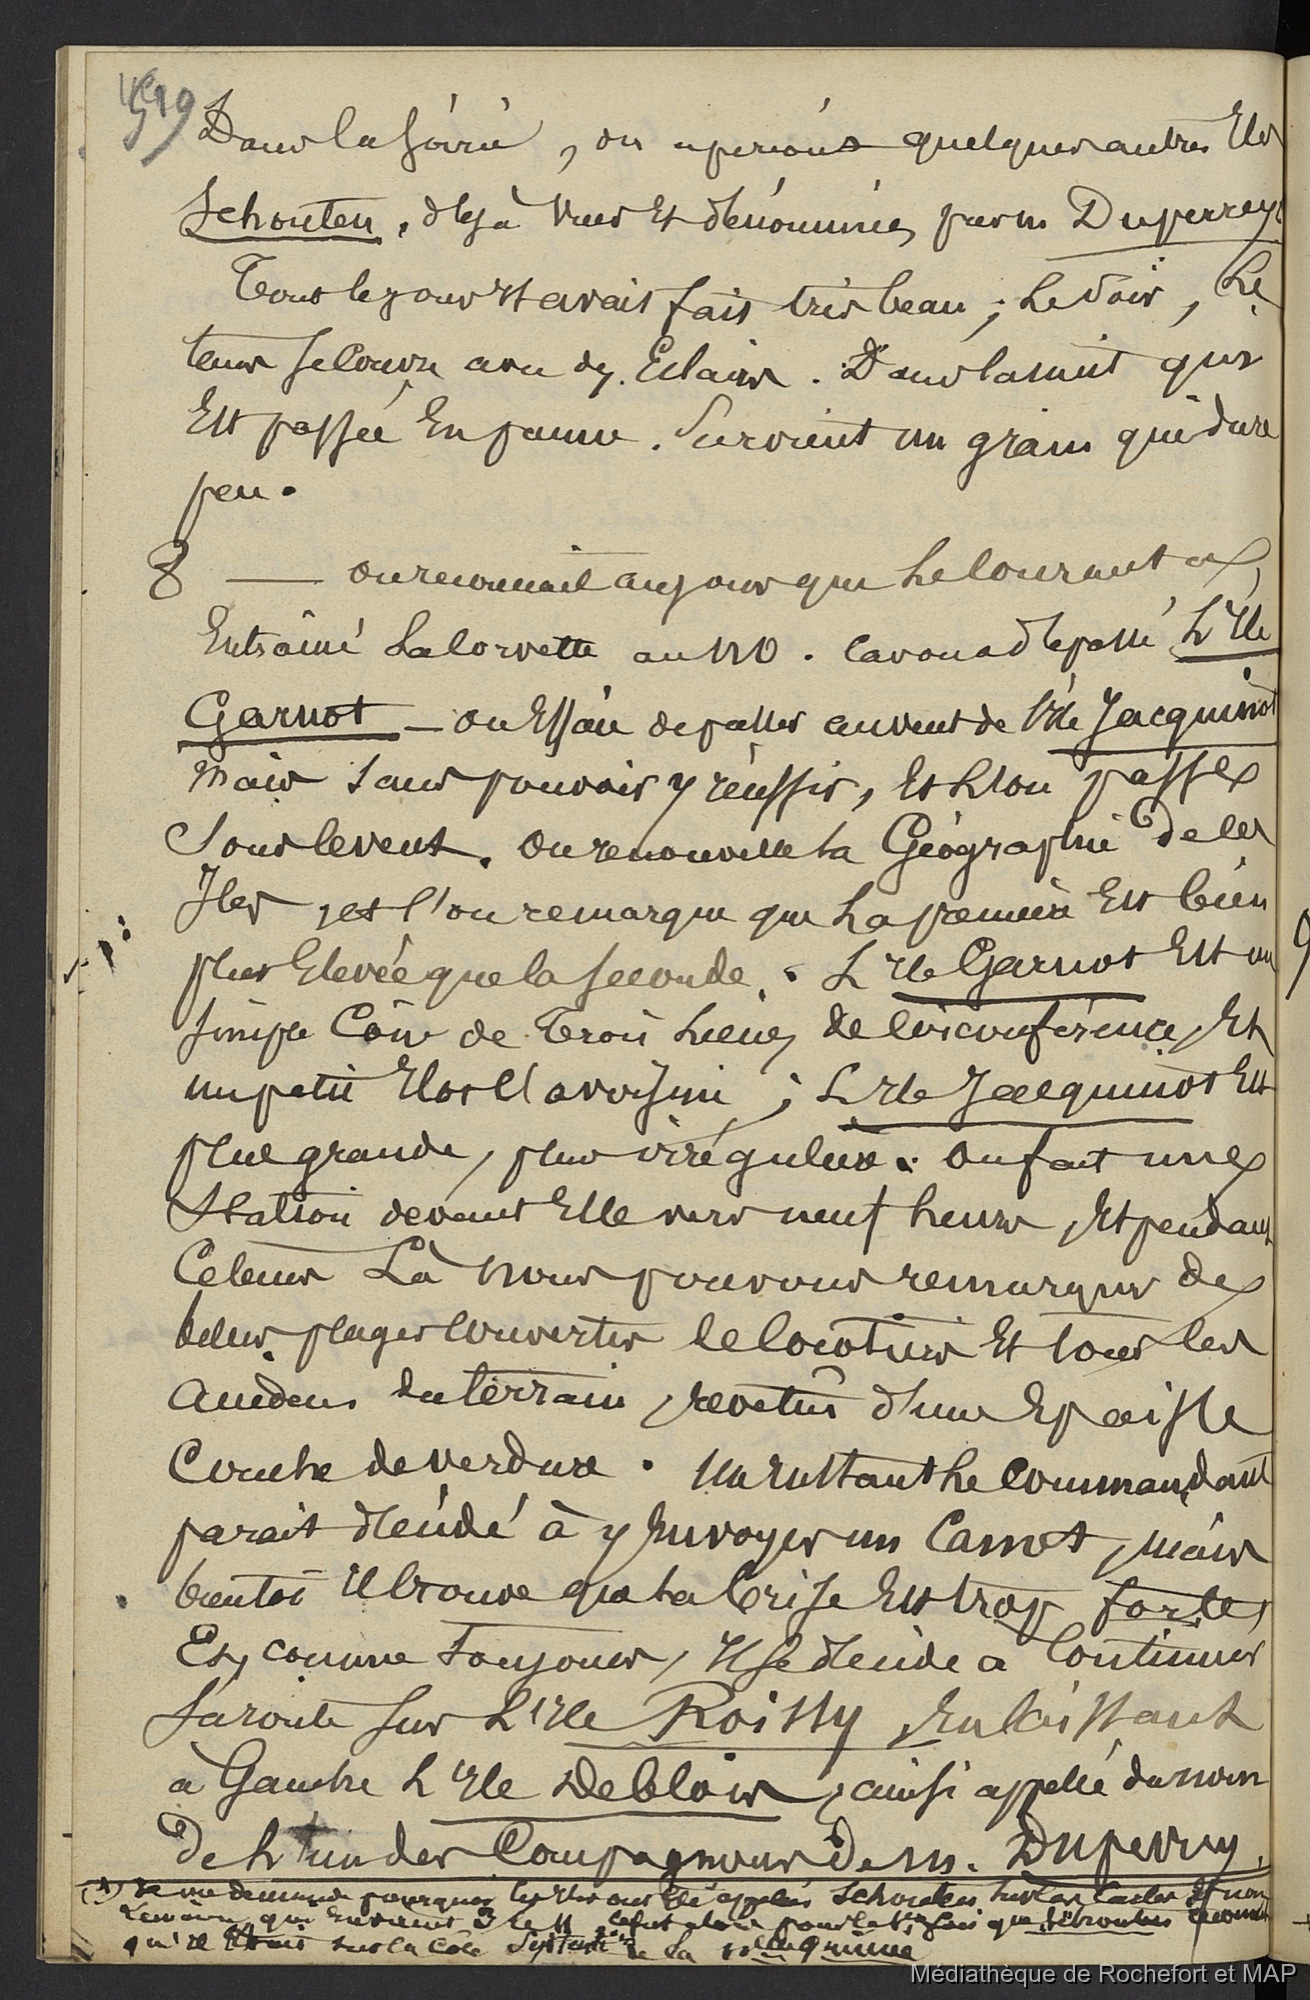 519
Dans la soirée, on aperçoit quelques autres Iles
Schouten, déjà vues et dénommées par m Duperrey.
Tout le jour il avait fait très beau ; Le soir, Le
tems se couvre avec des Eclairs. Dans la nuit qui
Est passée En panne. Survient un grain qui dure
peu.
8 — on reconnait au jour que Le Courant a
Entraîné La Corvette au NO. Ca vous a dépassé L'Ile
Garnot — on Essaie de passer au vent de l'Ile Jacquinot
mais sans pouvoir y réussir, Et L'on passe
Sous le vent. On renouvelle La Géographie de ces
Iles, et l'on remarque que La première Est bien
plus Elevée que la seconde. L'Ile Garnot Est un
simple Cône de Trois Lieues de Circonférence, Et
un petit Ilot l'avoisine ; L'Ile Jacquinot Est
plus grande, plus irrégulière. On fait une
Station devant Elle vers neuf heures, Et pendant
Ce tems Là nous pouvons remarquer de
belles plages Couvertes de Cocotiers Et tous les
accidens du terrain, revêtus d'une Epaisse
Couche de verdure. Un Instant Le Commandant
parait décidé à y Envoyer un Canot, mais
bientôt Il trouve que La brise Est trop forte,
Et, comme toujours, Il se décide a Continuer
Sa route sur L'Ile Roissy, En laissant
à Gauche L'Ile Deblois, ainsi appellé du nom
De L'un des Compagnons de m. Duperrey.
(1) Je me demande pourquoi les Iles ont été appelées Schouten sur les Cartes et non
Lemaire, qui
qu'il était sur la Côte de La nlle guinée
Médiathèque de Rochefort et MAP